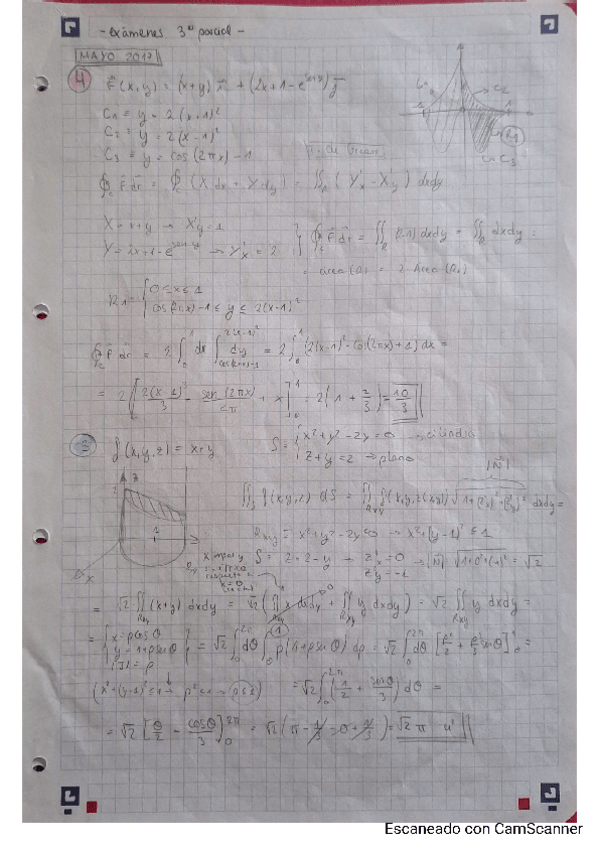 - exámenes 3er parcial -
MAYO 2017
4 F(x,y) = (x+y) i + (2x+1-e^{sen y}) j
C1 ≡ y = 2(x+1)²
C2 ≡ y = 2(x-1)²
C3 ≡ y = cos(2πx) - 1
C1
C2
R1
C3
∮c F dr = ∮c (X dx + Y dy) = ∬R (Y'x - X'y) dxdy
X = x+y → X'y = 1
Y = 2x+1-e^{sen y} → Y'x = 2
∮c F dr = ∬R (2-1) dxdy = ∬R dxdy =
= área(R) = 2 Area(R1)
R1 = { 0 ≤ x ≤ 1
cos(2πx) - 1 ≤ y ≤ 2(x-1)²
∮c F dr = 2 ∫₀¹ dx ∫_{cos(2πx)-1}^{2(x-1)²} dy = 2 ∫₀¹ (2(x-1)² - cos(2πx) + 1) dx =
= 2 [ 2(x-1)³/3 - sen(2πx)/2π + x ]₀¹ = 2(1 + 2/3) = 10/3
f(x,y,z) = x+y
S ≡ { x²+y²-2y=0 → cilindro
z+y=2 → plano
|N|
∬S f(x,y,z) dS = ∬Rxy f(x,y,z(x,y)) √(1+(z'x)²+(z'y)²) dxdy =
Rxy ≡ x²+y²-2y=0 → x²+(y-1)² ≤ 1
S ≡ z = 2-y → z'x = 0
z'y = -1
|N| √(1+0²+(-1)²) = √2
x impar y
respecto
x=0
= √2 ∬Rxy (x+y) dxdy = √2 (∬Rxy x dxdy + ∬Rxy y dxdy) = √2 ∬Rxy y dxdy =
= { x = ρcosθ
y = 1+ρsenθ
|J| = ρ } = √2 ∫₀^{2π} dθ ∫₀¹ ρ(1+ρsenθ) dρ = √2 ∫₀^{2π} dθ [ρ²/2 + ρ³/3 senθ]₀¹ =
(x²+(y-1)² ≤ 1 → ρ² ≤ 1 → ρ ≤ 1) = √2 ∫₀^{2π} (1/2 + senθ/3) dθ =
= √2 [θ/2 - cosθ/3]₀^{2π} = √2 (π - 1/3 - 0 + 1/3) = √2 π u²
Escaneado con CamScanner